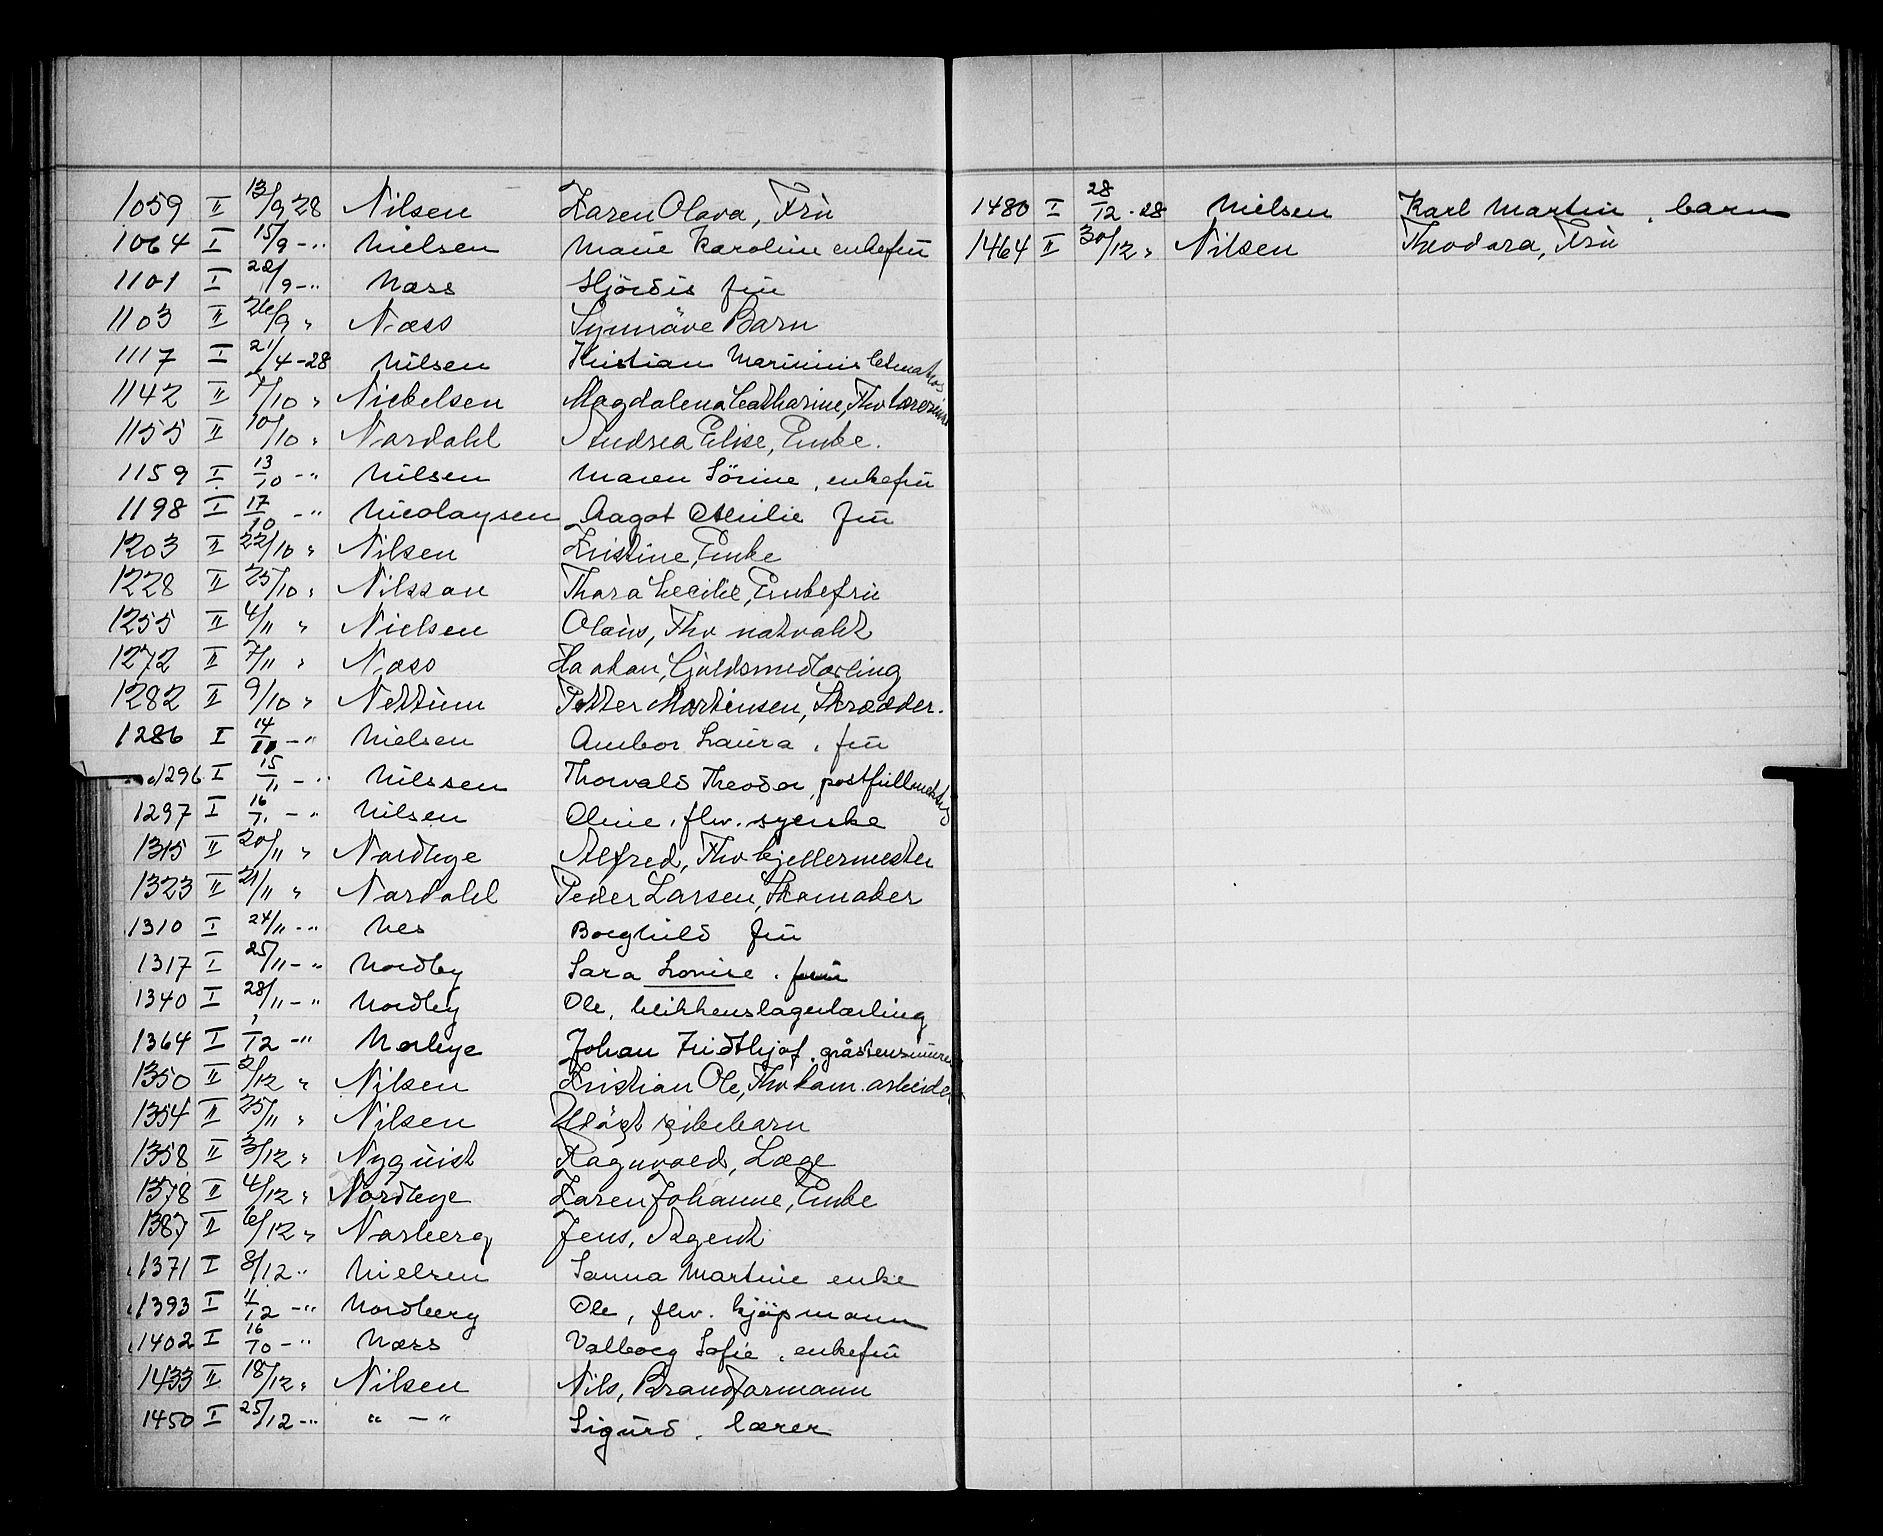 1059 II 13/9 28 Nilsen Karen Olava, Frü
1064 I 15/9 -" Nielsen Marie Karoline enkefrü
1101 I 22/9 -" Næss Hjördis frü
1103 II 26/9 " Næss Synnöve Barn
1117 I 21/4 -28 Nilsen Kristian Marinius letmatros
1142 II 7/10 " Nickelsen Magdalena Catharine, Fhv lærerinne
1155 II 10/10 " Nordahl Andrea Elise, Enke.
1159 I 13/10 -" Nilsen Maren Sörine, enkefrü
1198 I 17/10 -" Nicolaysen Aagot Emilie frü
1203 II 22/10 " Nilsen Kristine, Enke
1228 II 25/10 " Nilsson Thora Cecilie, Enkefrü
1255 II 4/11 " Nielsen Olaüs, Fhv natvakt
1272 II 7/11 " Næss Haakon, Guldsmedlærling
1282 II 9/10 " Nettüm Petter Martinsen, Skrædder.
1286 I 14/11 -" Nielsen Ambor Laüra, frü
1296 I 15/11 -" Nilssen Thorvald Theodor, postfullmektig
1297 I 16/11 -" Nilsen Oline, fhv. syerske
1315 II 20/11 " Nordbye Alfred, Fhv kjellermester
1323 II 21/11 " Nordahl Peder Larsen, Skomaker
1310 I 24/11 -" Nes Borghild frü
1317 I 25/11 -" Nordby Sara Lovise. frü
1340 I 28/11 -" Nordby Ole, blikkenslagerlærling
1364 I 1/12 -" Norbye Johan Fridthjof, gråstensmürer
1350 II 2/12 " Nilsen Kristian Ole, Fhv kom. arbeider
1354 II 25/11 " Nilsen Udöpt pikebarn
1358 II 3/12 " Nyqüist Ragnvald, Læge
1378 II 4/12 " Nordbye Karen Johanne, Enke
1387 II 6/12 " Norberg Jens, Agent
1371 I 8/12 " Nielsen Sanna Martine enke
1393 I 11/12 -" Nordberg Ole, fhv. kjöpmann
1402 I 16/10 -" Næss Valborg Sofie, enkefrü
1433 II 18/12 " Nilsen Nils, Brandformann
1450 I 25/12 -" " - " Sigürd, lærer
1480 I 28/12 -28 Nielsen Karl Martin, barn
1464 II 30/12 " Nilsen Theodora, Frü